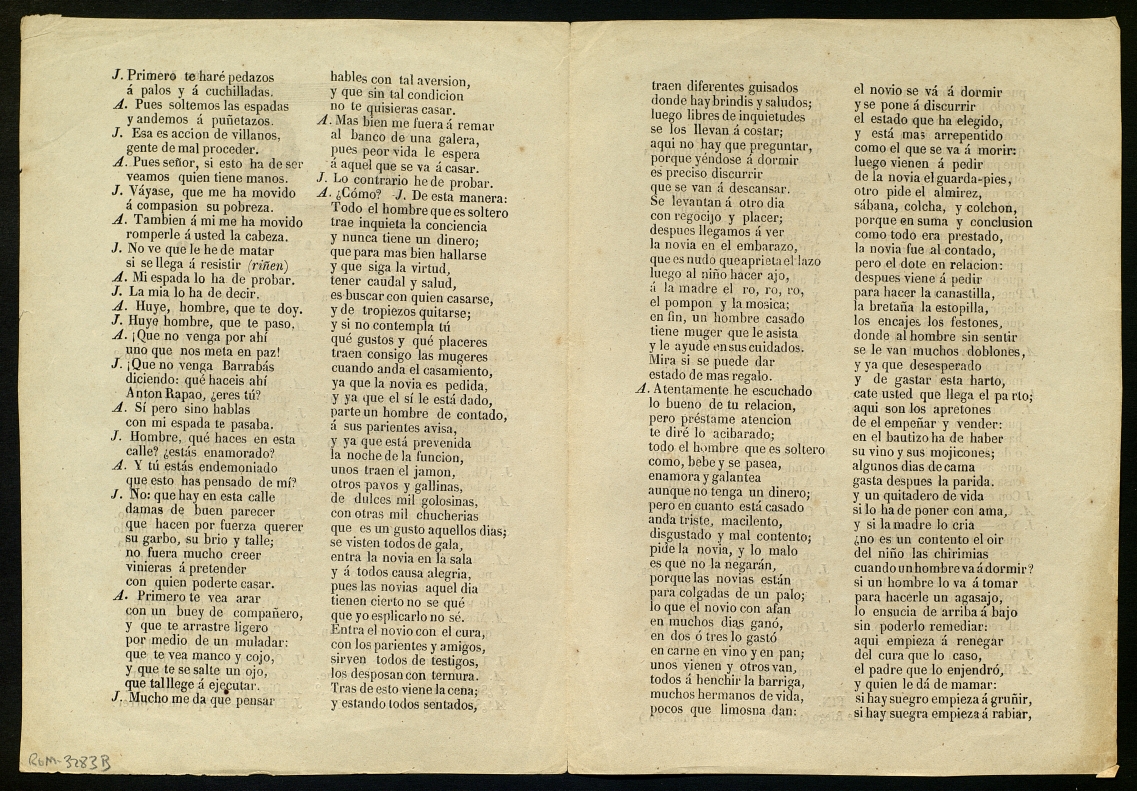 J. Primero te haré pedazos
á palos y á cuchilladas.
A. Pues soltemos las espadas
y andemos á puñetazos.
J. Esa es accion de villanos,
gente de mal proceder.
A. Pues señor, si esto ha de ser
veamos quien tiene manos.
J. Váyase, que me ha movido
á compasion su pobreza.
A. Tambien á mi me ha movido
romperle á usted la cabeza.
J. No ve que le he de matar
si se llega á resistir (riñen)
A. Mi espada lo ha de probar.
J. La mia lo ha de decir.
A. Huye, hombre, que te doy.
J. Huye hombre, que te paso.
A. ¡Que no venga por ahí
uno que nos meta en paz!
J. ¡Que no venga Barrabás
diciendo: qué haceis ahí
Anton Rapao, ¿eres tú?
A. Sí pero sino hablas
con mi espada te pasaba.
J. Hombre, qué haces en esta
calle? ¿estás enamorado?
A. Y tú estás endemoniado
que esto has pensado de mí?
J. No: que hay en esta calle
damas de buen parecer
que hacen por fuerza querer
su garbo, su brio y talle;
no fuera mucho creer
vinieras á pretender
con quien poderte casar.
A. Primero te vea arar
con un buey de compañero,
y que te arrastre ligero
por medio de un muladar:
que te vea manco y cojo,
y que te se salte un ojo,
que tal llege á ejecutar.
J. Mucho me da que pensar
hables con tal aversion,
y que sin tal condicion
no te quisieras casar.
A. Mas bien me fuera á remar
al banco de una galera,
pues peor vida le espera
á aquel que se va á casar.
J. Lo contrario he de probar.
A. ¿Cómo? J. De esta manera:
Todo el hombre que es soltero
trae inquieta la conciencia
y nunca tiene un dinero;
que para mas bien hallarse
y que siga la virtud,
tener caudal y salud,
es buscar con quien casarse,
y de tropiezos quitarse;
y si no contempla tú
qué gustos y qué placeres
traen consigo las mugeres
cuando anda el casamiento,
ya que la novia es pedida,
y ya que el sí le está dado,
parte un hombre de contado,
á sus parientes avisa,
y ya que está prevenida
la noche de la funcion,
unos traen el jamon,
otros pavos y gallinas,
de dulces mil golosinas,
con otras mil chucherias
que es un gusto aquellos dias;
se visten todos de gala,
entra la novia en la sala
y á todos causa alegria,
pues las novias aquel dia
tienen cierto no se qué
que yo esplicarlo no sé.
Entra el novio con el cura,
con los parientes y amigos,
sirven todos de testigos,
los desposan con ternura.
Tras de esto viene la cena;
y estando todos sentados,
traen diferentes guisados
donde hay brindis y saludos;
luego libres de inquietudes
se los llevan á costar;
aqui no hay que preguntar,
porque yéndose á dormir
es preciso discurrir
que se van á descansar.
Se levantan á otro dia
con regocijo y placer;
despues llegamos á ver
la novia en el embarazo,
que es nudo que aprieta el lazo
luego al niño hacer ajo,
á la madre el ro, ro, ro,
el pompon y la mosica;
en fin, un hombre casado
tiene muger que le asista
y le ayude en sus cuidados.
Mira si se puede dar
estado de mas regalo.
A. Atentamente he escuchado
lo bueno de tu relacion,
pero préstame atencion
te diré lo acibarado;
todo el hombre que es soltero
come, bebe y se pasea,
enamora y galantea
aunque no tenga un dinero;
pero en cuanto está casado
anda triste, macilento,
disgustado y mal contento;
pide la novia, y lo malo
es que no la negarán,
porque las novias están
para colgadas de un palo;
lo que el novio con afan
en muchos dias ganó,
en dos ó tres lo gastó
en carne en vino y en pan;
unos vienen y otros van,
todos á henchir la barriga,
muchos hermanos de vida,
pocos que limosna dan:
el novio se vá á dormir
y se pone á discurrir
el estado que ha elegido,
y está mas arrepentido
como el que se va á morir:
luego vienen á pedir
de la novia el guarda-pies,
otro pide el almirez,
sábana, colcha, y colchon,
porque en suma y conclusion
como todo era prestado,
la novia fue al contado,
pero el dote en relacion:
despues viene á pedir
para hacer la canastilla,
la bretaña la estopilla,
los encajes los festones,
donde al hombre sin sentir
se le van muchos doblones,
y ya que desesperado
y de gastar esta harto,
cate usted que llega el parto;
aqui son los apretones
de el empeñar y vender:
en el bautizo ha de haber
su vino y sus mojicones;
algunos dias de cama
gasta despues la parida.
y un quitadero de vida
si lo ha de poner con ama,
y si la madre lo cria
¿no es un contento el oir
del niño las chirimias
cuando un hombre va á dormir?
si un hombre lo va á tomar
para hacerle un agasajo,
lo ensucia de arriba á bajo
sin poderlo remediar:
aqui empieza á renegar
del cura que lo caso,
el padre que lo enjendró,
y quien le dá de mamar:
si hay suegro empieza á gruñir,
si hay suegra empieza á rabiar,
ROM-3283B